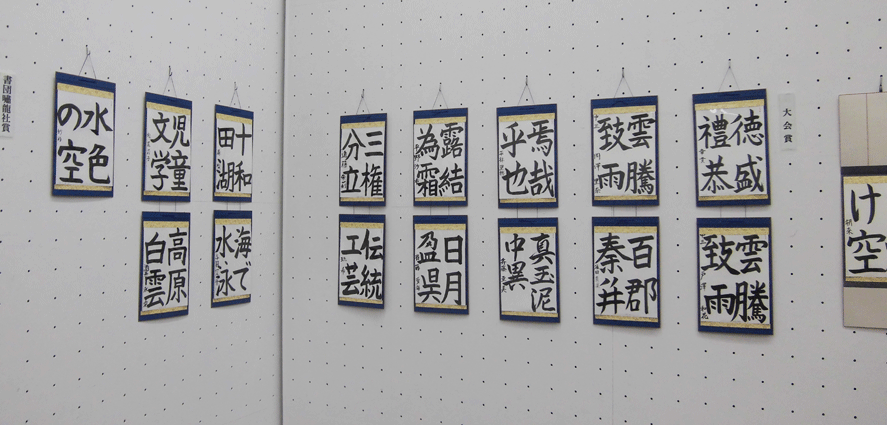 け空
大会賞
徳盛
禮恭
雲騰
致雨
雲騰
致雨
百郡
秦并
焉哉
乎也
真玉泥
中異
露結
為霜
日月
盈昃
三権
分立
伝統
工芸
十和
田湖
海で
水泳
児童
文学
高原
白雲
水色
の空
書団嘯龍社賞